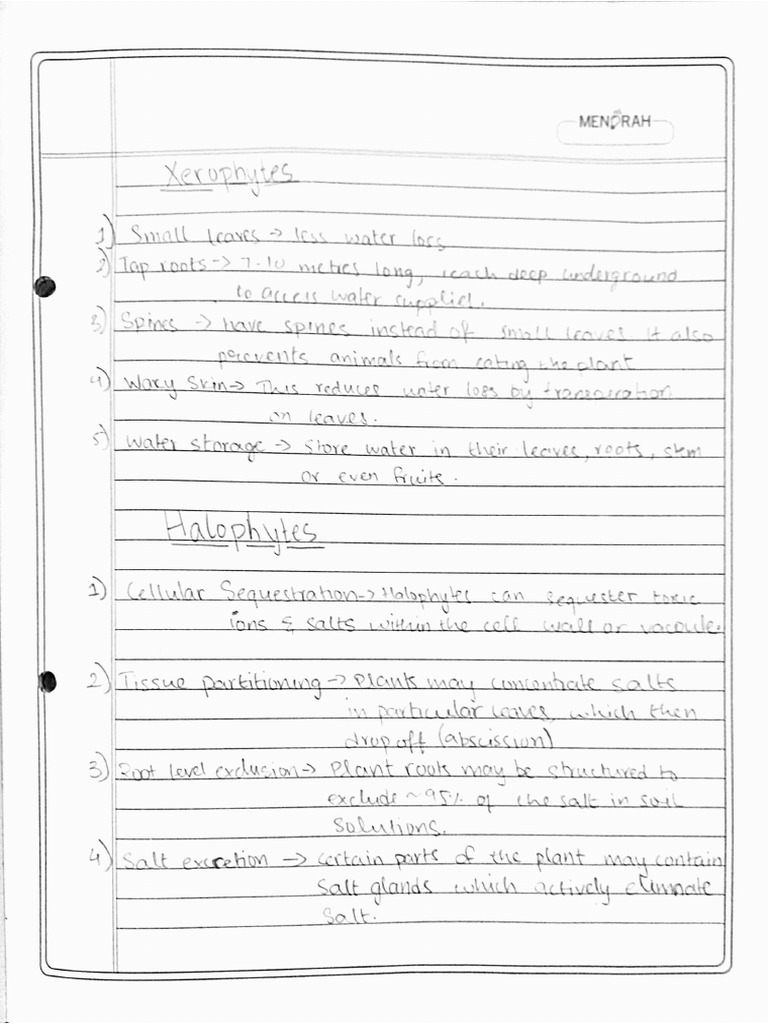 MENORAH
Xerophytes
1) Small leaves → less water loss
2) Tap roots → 7-10 metres long, reach deep underground
to access water supplies.
3) Spines → have spines instead of small leaves. It also
prevents animals from eating the plant
4) Waxy Skin → This reduces water loss by transpiration
on leaves.
5) Water storage → store water in their leaves, roots, stem
or even fruits.
Halophytes
1) Cellular Sequestration → Halophytes can sequester toxic
ions & salts within the cell wall or vacuole.
2) Tissue partitioning → Plants may concentrate salts
in particular leaves, which then
drop off (abscission)
3) Root level exclusion → Plant roots may be structured to
exclude ~95% of the salt in soil
solutions.
4) Salt excretion → certain parts of the plant may contain
salt glands which actively eliminate
salt.